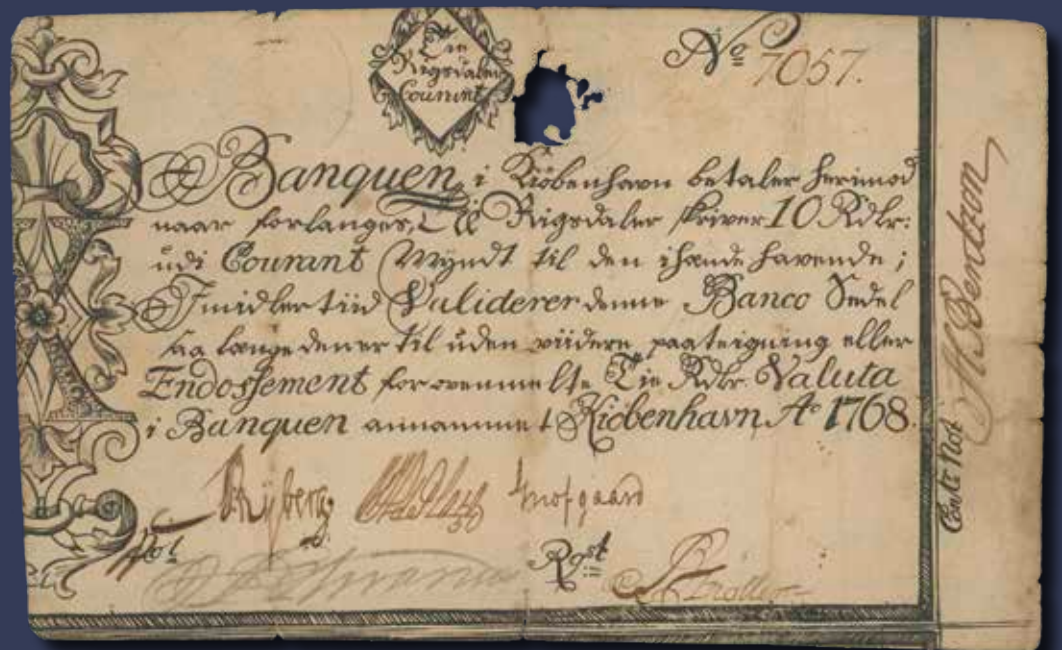 Tie
Rigsdaler
Courant
No 7057.
Banquen i Kiöbenhavn betaler herimod
naar forlanges, Tie Rigsdaler skriver 10 Rdlr:
udi Courant Myndt til den ihænde havende;
Imidlertiid Validerer denne Banco Sedel
saa længe dener til uden viidere paateigning eller
Endossement for ovenmelte Tie Rdlr. Valuta
i Banquen annammet Kiöbenhavn Ao 1768.
Ryberg Knofgaard
Not
Rgst
Contr Not
H Bentzon